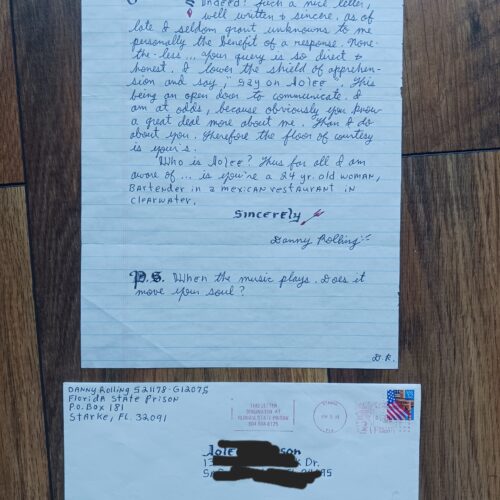 Indeed! Such a nice letter,
well written & sincere. as of
late I seldom grant unknowns to me
personally the benefit of a response. None-
the-less... your query is so direct &
honest. I lower the shield of apprehen-
sion and say, Say on Jolee. This
being an open door to communicate. I
am at odds, because obviously you know
a great deal more about me. Than I do
about you. Therefore the floor of courtesy
is your's.
Who is Jolee? Thus far all I am
aware of... is you're a 24 yr. old woman,
Bartender in a mexican restaurant in
Clearwater.
Sincerely
Danny Rolling
P.S. When the music plays. Does it
move your soul?
D.R.
Danny Rolling 521178-G1207S
Florida State Prison
P.O. Box 181
Starke, FL. 32091
THIS LETTER
ORIGINATED AT
FLORIDA STATE PRISON
Dr.